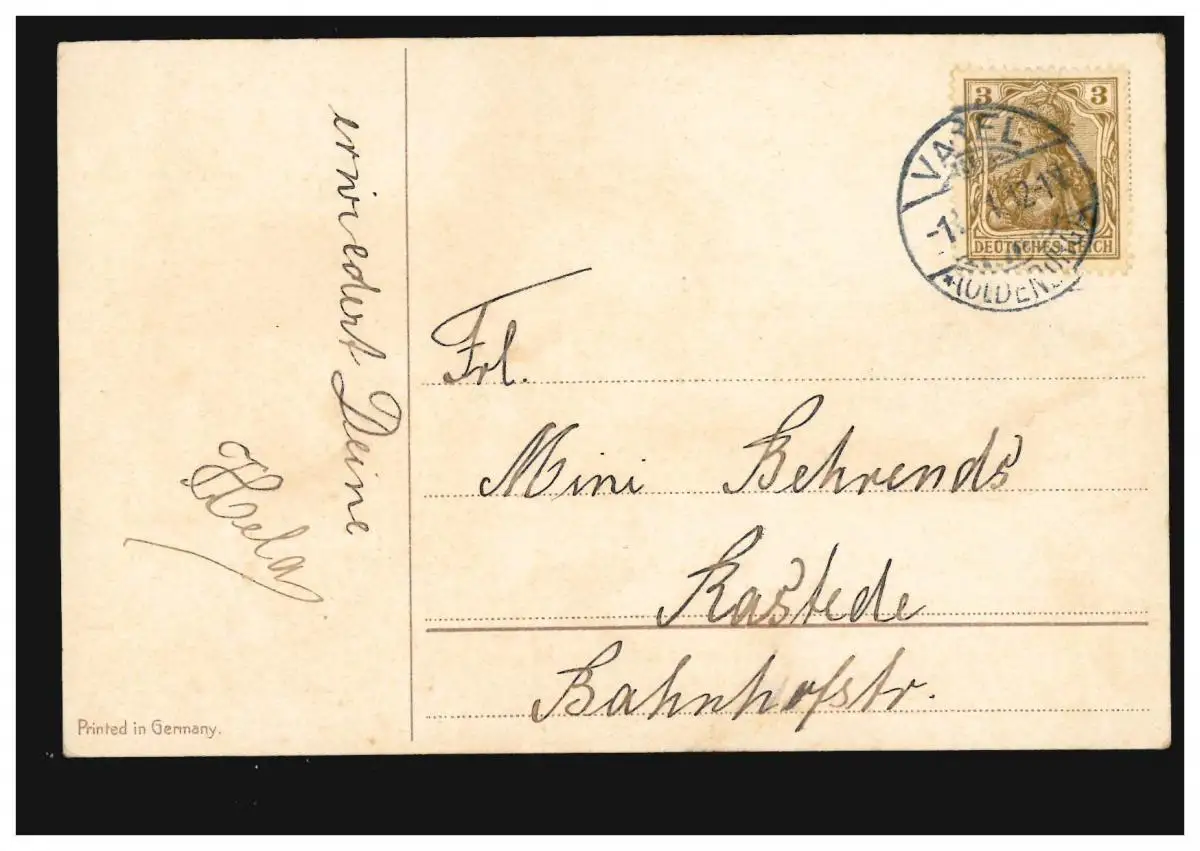 erwiedert Deine
Hela
Printed in Germany.
3 3
DEUTSCHES REICH
VAREL
(OLDENBURG)
Frl.
Mini Behrends
Rastede
Bahnhofstr.